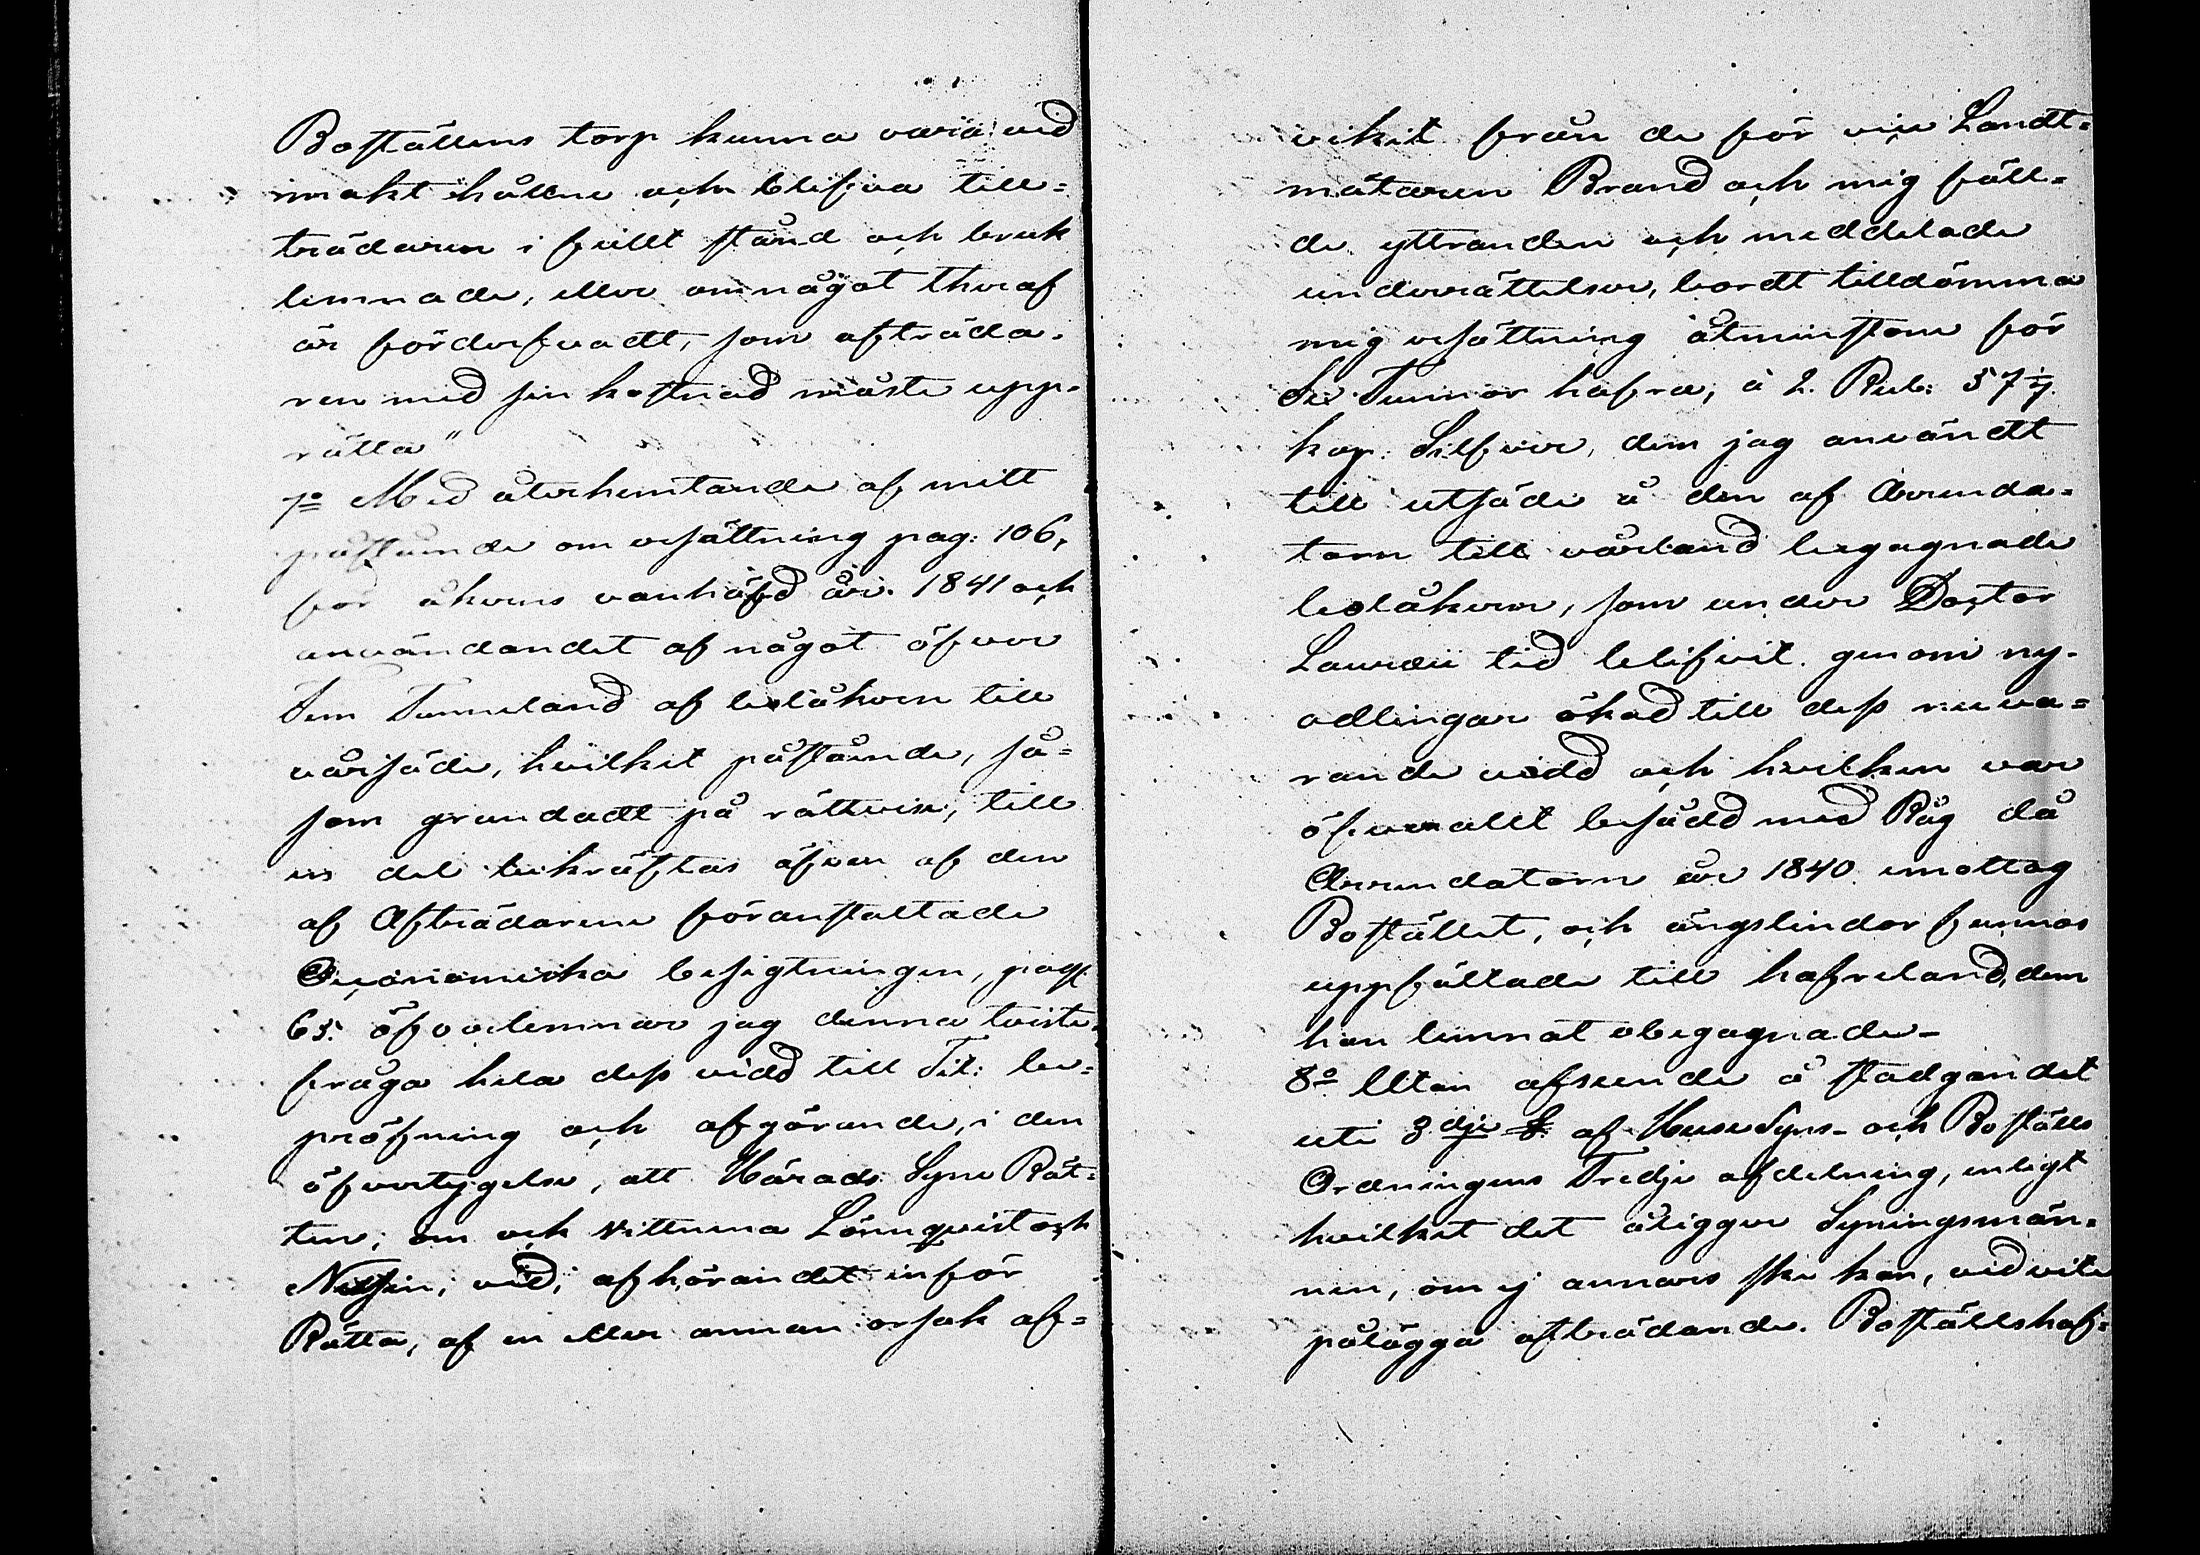 Boställens torp kunna vara vid
magt hållne och blifva till=
trädaren i fullt stånd och bruk
lemnade, eller om något theraf
är förderfvadt, som afträda-
ren med sin kostnad måste upp-
rätta"
7:o Med återhemtande af mitt
påstående om ersättning pag: 106,
för åkerns vanhäfd år 1841 och
användandet af något öfver
Fem Tunneland af bolåkern till
vårsäde, hvilket påstående, så=
som grundadt på rättvisa, till
en del bekräftas äfven af den
af Afträdarene föranstaltade
Oeconomiska besigtningen, pag:
65. öfverlemnar jag denna tviste-
fråga hela dess vidd till Tit: be=
pröfning och afgörande, i den
öfvertygelse, att Härads Syne Rät-
ten, om och vittnena Lönnqvist och
vid afhörandet inför
Rätta, af en eller annan orsak af=
vikit från de för vice Landt=
mätaren Brand och mig fäll=
de yttranden och meddelade
underrättelser, bordt tilldömma
mig ersättning åtminstone för
Sex Tunnor hafra, à 2. Rub: 57 1/7.
kop: Silfver, dem jag användt
till utsäde å den af Arrenda=
torn till vårland begagnade
bolåkern, som under Doctor
Lauræi tid blifvit genom ny-
odlingar ökad till dess nuva=
rande vidd och hvilken var
öfverallt besådd med Råg då
Arrendatorn år 1840 emottog
Bostället, och ängslindor funnos
uppfällade till hafreland, dem
han lemnat obegagnade-
8:o Utan afseende å stadgandet
uti 3dje § af Husesyns- och Boställs
Ordningens Tredje afdelning, enligt
hvilket det åligger Syningsmän=
nen, om ej annars ske kan, vid vite
pålägga afträdande Boställshaf=